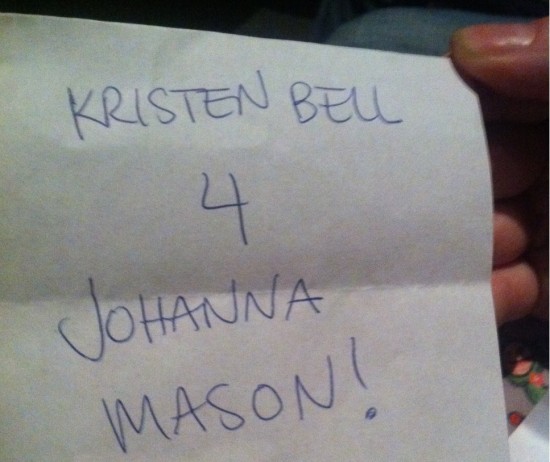 KRISTEN BELL
4
JOHANNA
MASON!